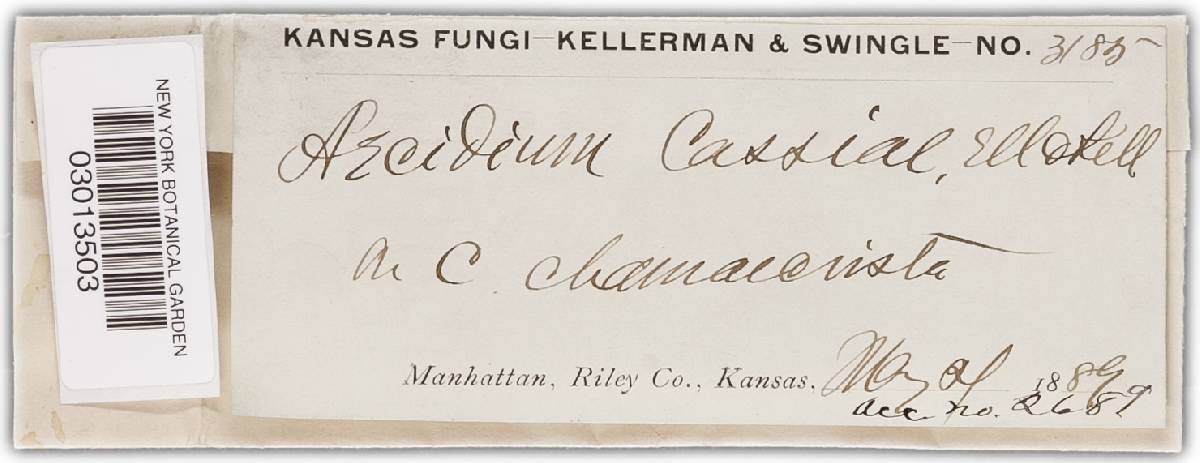 KANSAS FUNGI—KELLERMAN & SWINGLE—NO. 3185
Aecidium Cassiae, Ell & Kell
on C. chamaecrista
Manhattan, Riley Co., Kansas, May 1889
acc. no. 2689
NEW YORK BOTANICAL GARDEN
03013503